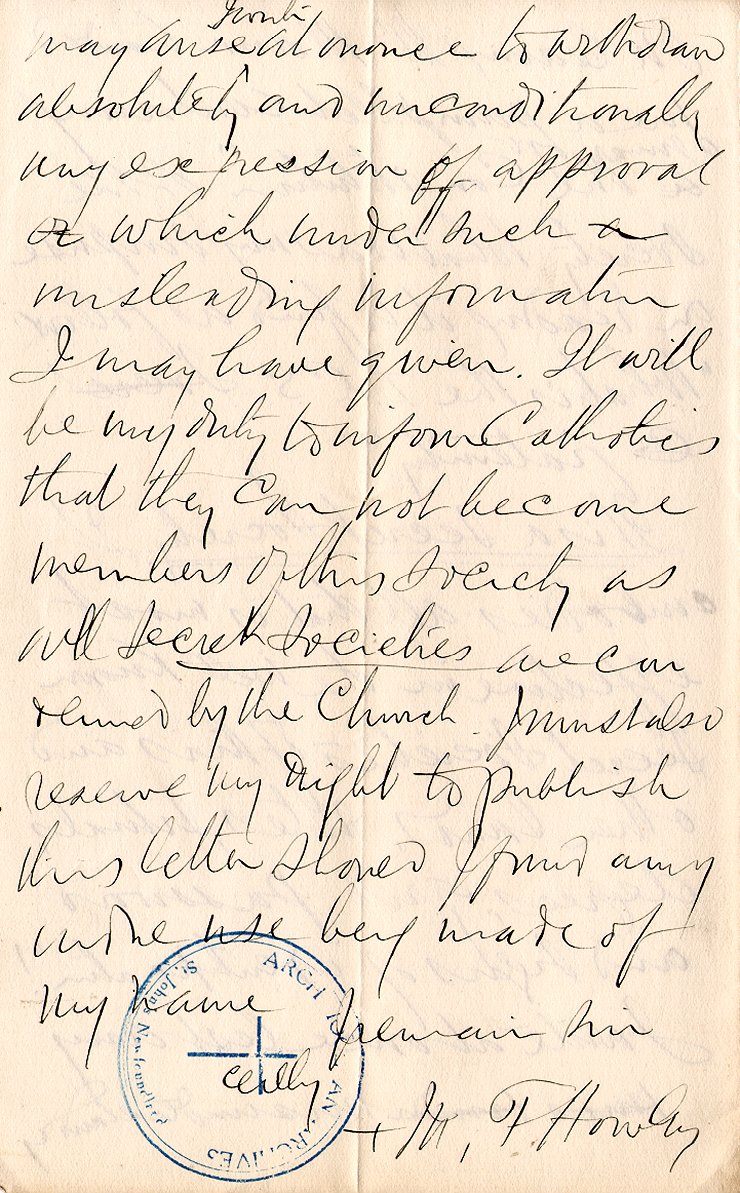 I wish
may arise at once to withdraw
absolutely and unconditionally
any expression of approval
or which under such a
misleading information
I may have given. It will
be my duty to inform Catholics
that they can not become
members of this society as
all secret societies are con
demned by the Church. I must also
reserve my right to publish
this letter should I find any
undue use being made of
my name I remain sin
cerely
+ M, F Howley
ARCHIVES
St. John's Newfoundland